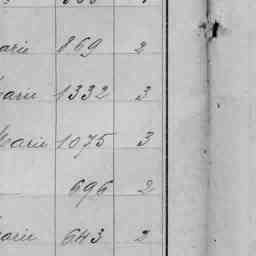 arie 869 2
arie 1332 3
Marie 1075 3
696 2
arie 643 2